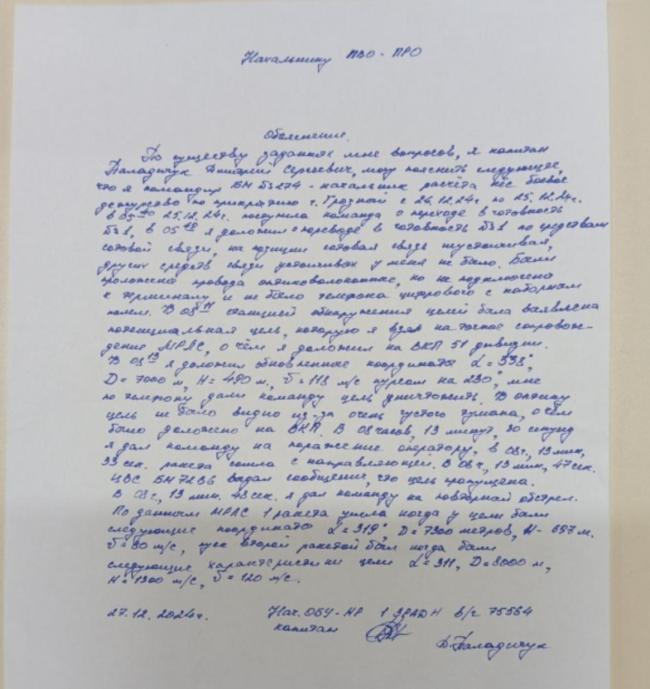 Начальнику ПВО-ПРО
Объяснение.
По существу заданных мне вопросов, я капитан
Паладичук Дмитрий Сергеевич, могу пояснить следующее,
что я командир БМ 73274 - начальник расчёта нёс боевое
дежурство по прикрытию г. Грозный с 24.12.24г. по 25.12.24г.
в 25.12.24г. поступила команда о переходе в готовность
№1, в 05 я доложил о переводе в готовность №1 по средствам
сотовой связи, на позиции сотовая связь неустойчивая,
других средств связи устойчивых у меня не было. Были
проложена провода оптиковолоконные, но не подключена
к терминалу и не было телефона цифрового с наборным
полем. В 08 станцией обнаружения целей была выявлена
потенциальная цель, которую я взял на точное сопровож-
дение МРЛС, о чём я доложил на ВКП 51 дивизии.
В 08 13 я доложил обновленные координаты α = 338°,
D = 7000 м, H = 480 м, v = 118 м/с курсом на 230°, мне
по телефону дали команду цель уничтожить. В оптику
цель не было видно из-за очень густого тумана, о чём
было доложено на ВКП. В 08 часов, 13 минут, 30 секунд
я дал команду на поражение оператору, в 08ч, 13 мин,
33 сек. ракета сошла с направляющей. В 08ч, 13 мин, 47 сек.
ЦВС БМ 72 В6 выдал сообщение, что цель пропущена.
В 08ч, 13 мин. 48 сек. я дал команду на повторный обстрел.
По данным МРЛС 1 ракета ушла когда у цели были
следующие координаты α = 319°, D = 7300 метров, H - 657 м.
v = 80 м/с, пуск второй ракетой был когда были
следующие характеристики цели α = 311, D = 8000 м,
H = 1300 м/с, v = 120 м/с.
27.12.2024г. Нач. ОБУ-НР 1 ЗРАДН в/ч 75554
капитан Д. Паладичук